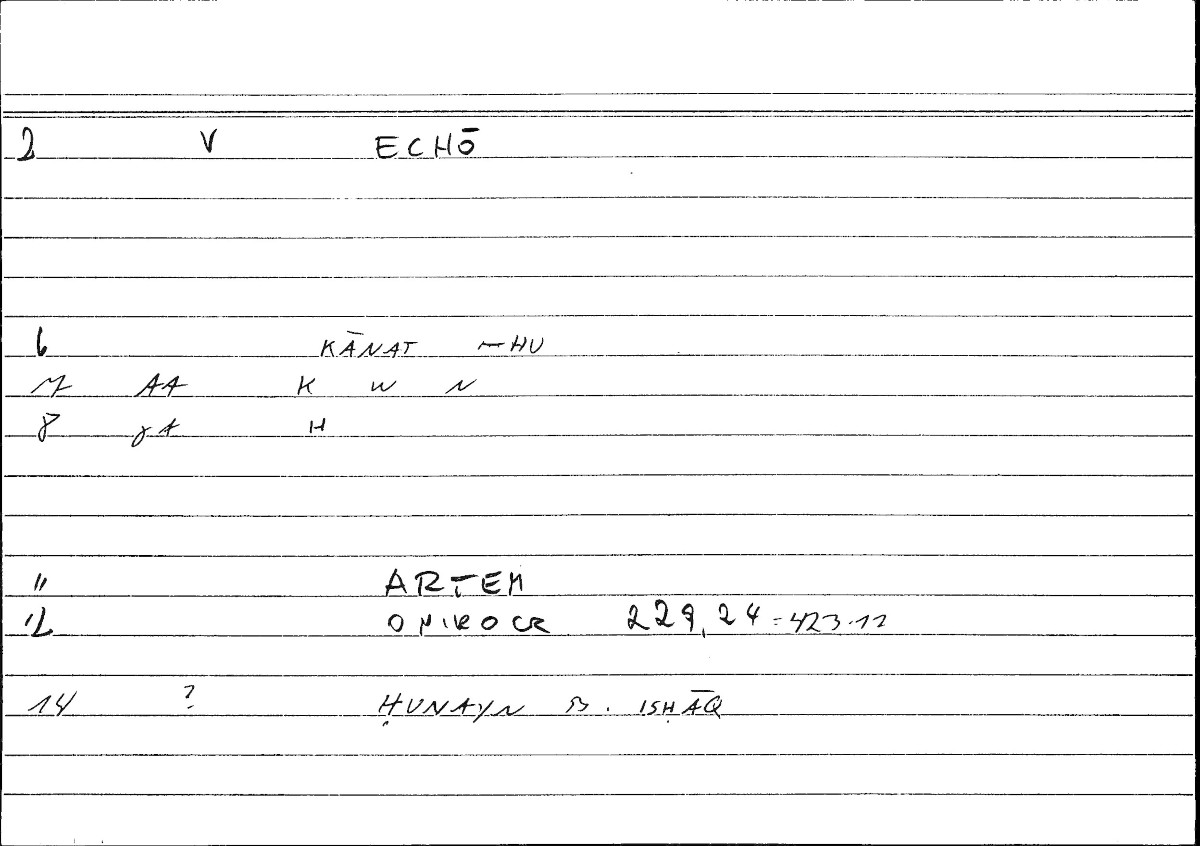 2 V ECHŌ
6 KĀNAT –HU
7 AA K W N
8 γA H
11 ARTEM
12 ONIROCR 229,24 = 423.11
14 ? ḤUNAYN B. ISḤĀQ